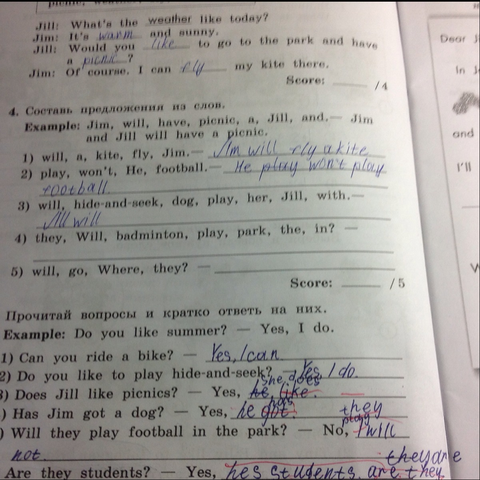 Jill: What's the weather like today?
Jim: It's warm and sunny.
Jill: Would you like to go to the park and have
a picnic?
Jim: Of course. I can fly my kite there.
Score: /4
4. Составь предложения из слов.
Example: Jim, will, have, picnic, a, Jill, and.— Jim
and Jill will have a picnic.
1) will, a, kite, fly, Jim.— Jim will fly a kite
2) play, won't, He, football.— He play won't play
football
3) will, hide-and-seek, dog, play, her, Jill, with.—
Jill will
4) they, Will, badminton, play, park, the, in? —
5) will, go, Where, they? —
Score: /5
Прочитай вопросы и кратко ответь на них.
Example: Do you like summer? — Yes, I do.
1) Can you ride a bike? — Yes, I can
2) Do you like to play hide-and-seek? — Yes I do.
she does
3) Does Jill like picnics? — Yes, he like.
has
) Has Jim got a dog? — Yes, he got.
they
) Will they play football in the park? — No, I will
not.
they are
Are they students? — Yes, hes students are they.
Dear J
In J
and
I'll